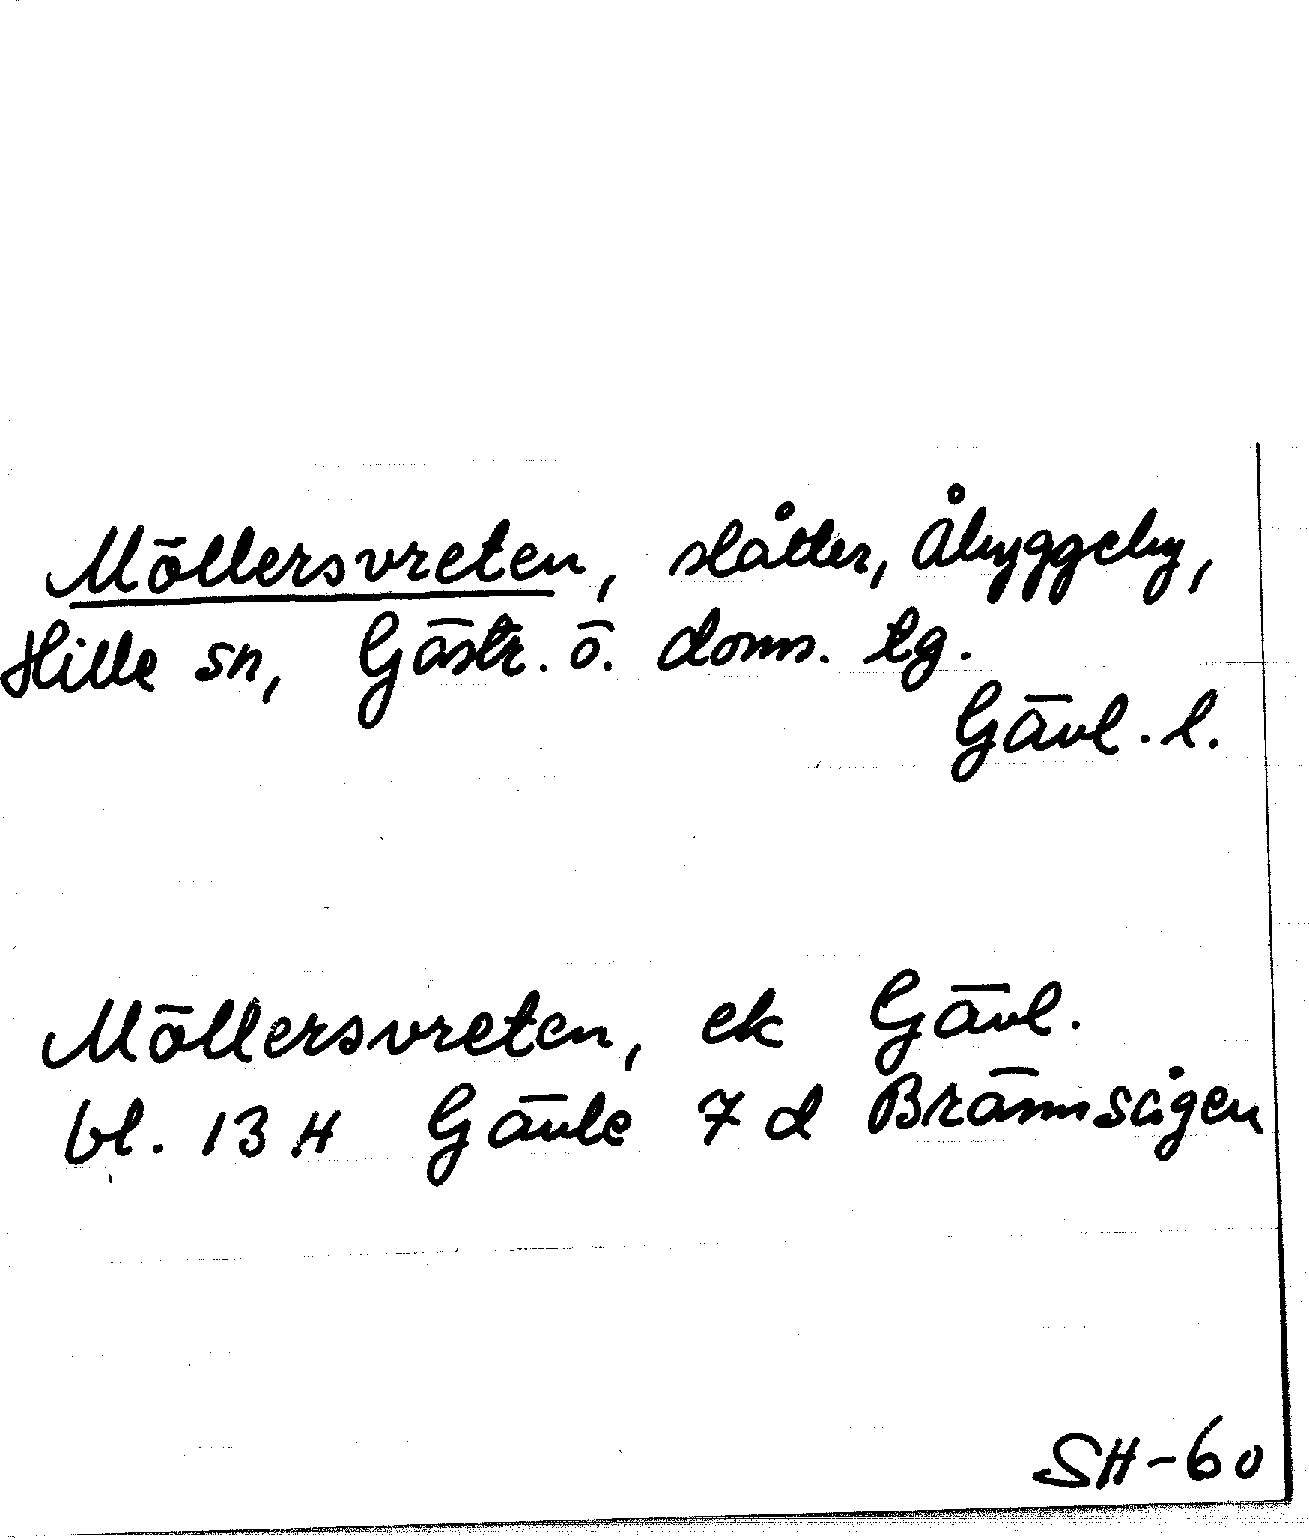 Möllersvreten, slåtter, Åbyggeby,
Hille sn, Gästr. ö. doms. tg.
Gävl. l.
Möllersvreten, ek Gävl.
bl. 13 H Gävle 7 d Brännsågen
SH-60